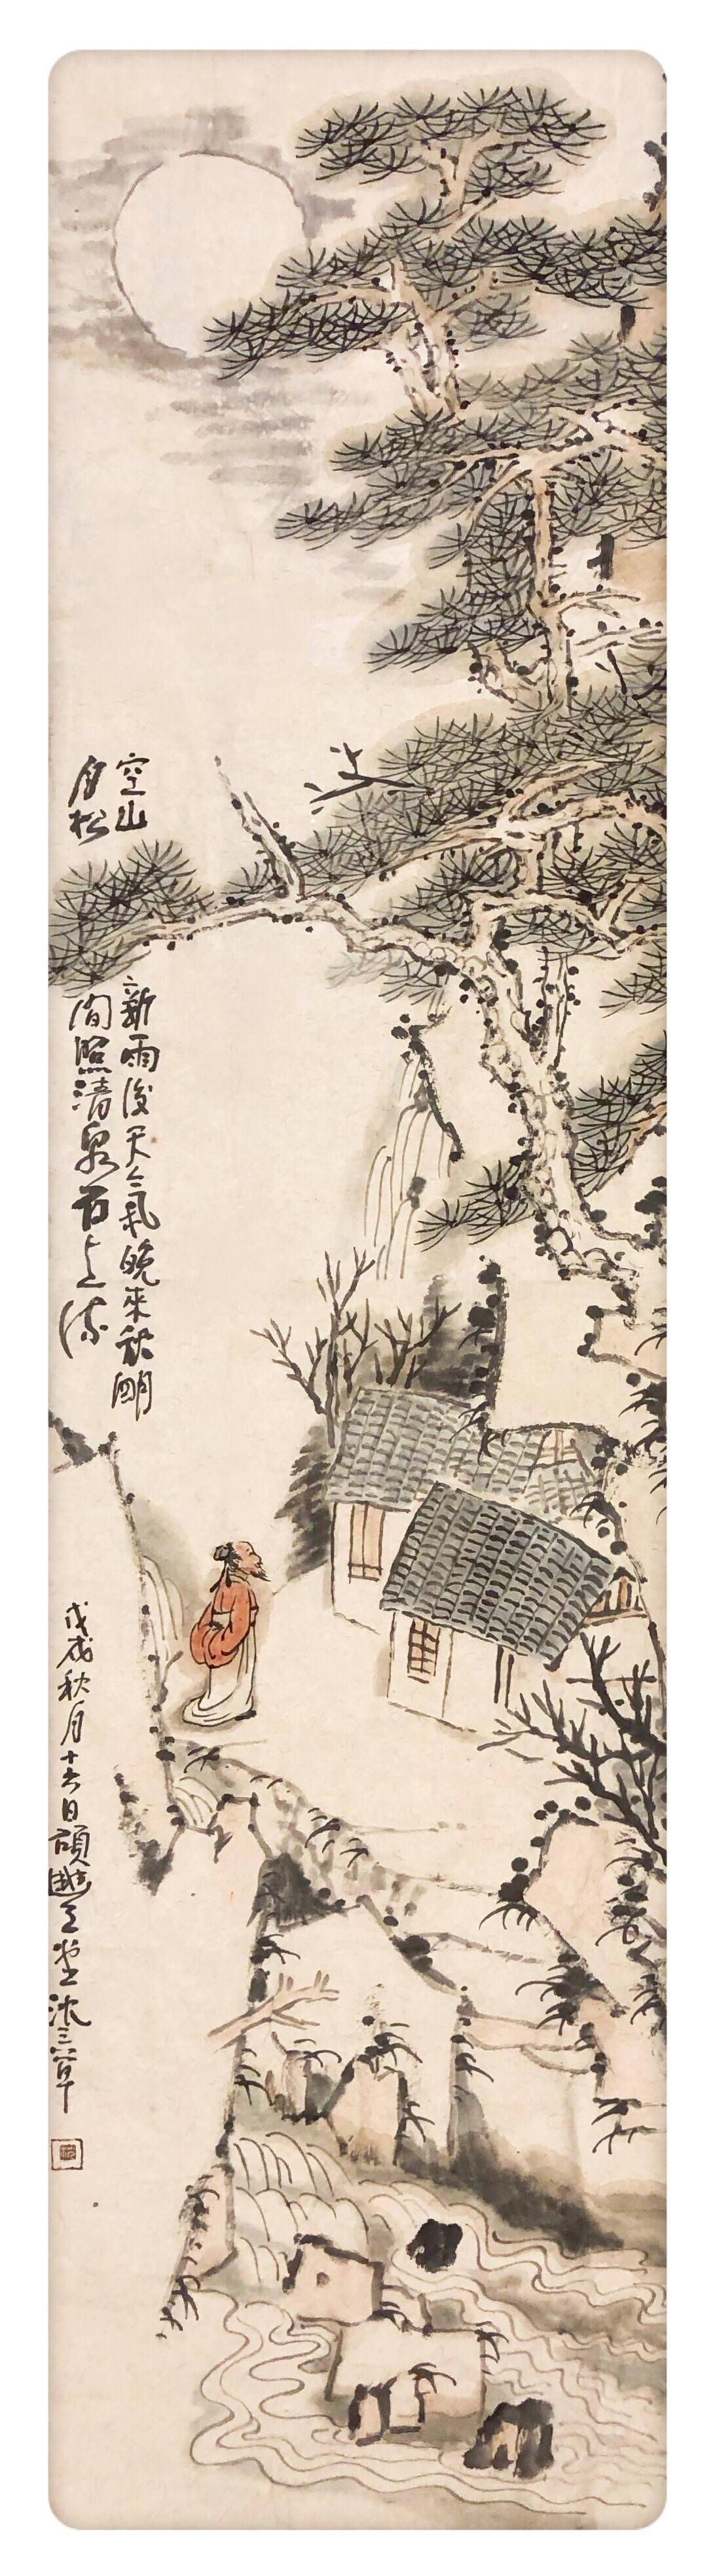 空山新雨後天氣晚來秋明
月松間照清泉石上流
戊戌秋月十六日堂沈三草